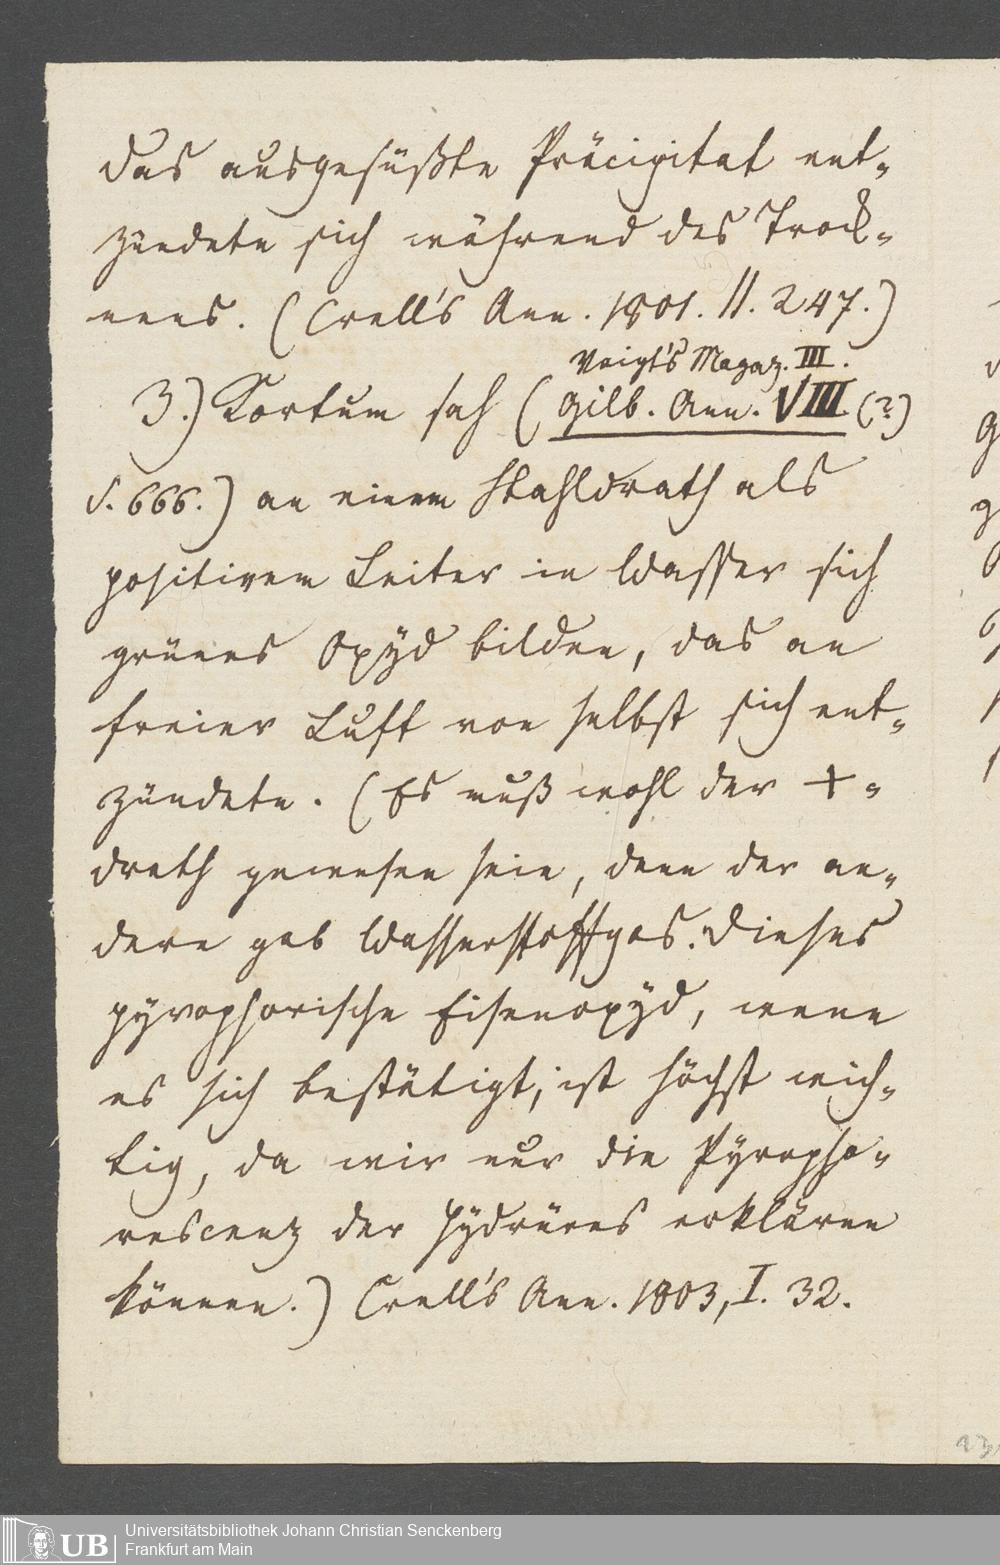 das ausgesüßte Präcipitat ent-
zündete sich während des Trock-
nens. (Crell's Ann. 1801. II. 247.)
Voigt's Magaz. III.
3.) Kortum sah (Gilb. Ann. VIII (?)
S. 666.) an einem Stahldrath als
positivem Leiter in Wasser sich
grünes Oxÿd bilden, das an
freier Luft von selbst sich ent-
zündete. (Es muß wohl der +-
drath gewesen sein, denn der an-
dere gab Wasserstoffgas. Dieses
pÿrophorische Eisenoxÿd, wenn
es sich bestätigt, ist höchst wich-
tig, da wir nur die Pÿropho-
rescenz der Hÿdrüres erklären
können.) Crell's Ann. 1803, I. 32.
UB
Universitätsbibliothek Johann Christian Senckenberg
Frankfurt am Main